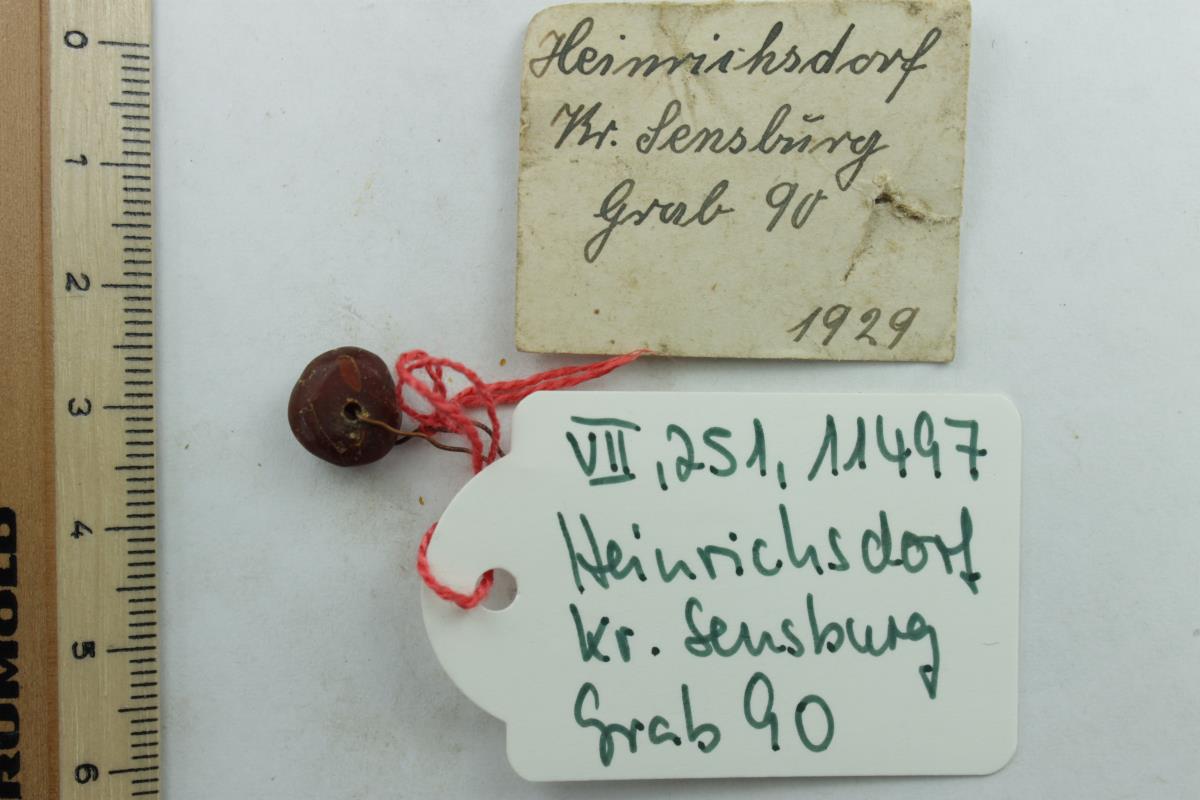 Heinrichsdorf
Kr. Sensburg
Grab 90
1929
VII, 251, 11497
Heinrichsdorf
Kr. Sensburg
Grab 90
0
1
2
3
4
5
6
RUMOLD